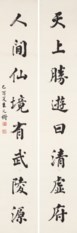 天上勝遊曰清虛府
人間仙境有武陵源